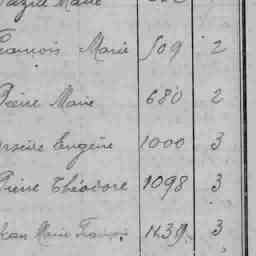 Marie
François Marie 509 2
Pierre Marie 680 2
Eugène 1000 3
Pierre Théodore 1098 3
Jean Marie François 1239 3